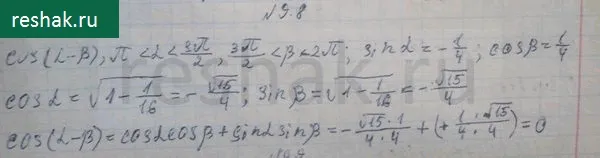 reshak.ru
№9.8
cos(α-β), π < α < 3π/2, 3π/2 < β < 2π; sin α = -1/4; cos β = 1/4
cos α = √(1 - 1/16) = -√15/4; sin β = √(1 - 1/16) = -√15/4
cos(α-β) = cos α cos β + sin α sin β = -√15·1/4·4 + (+1·√15/4·4) = 0